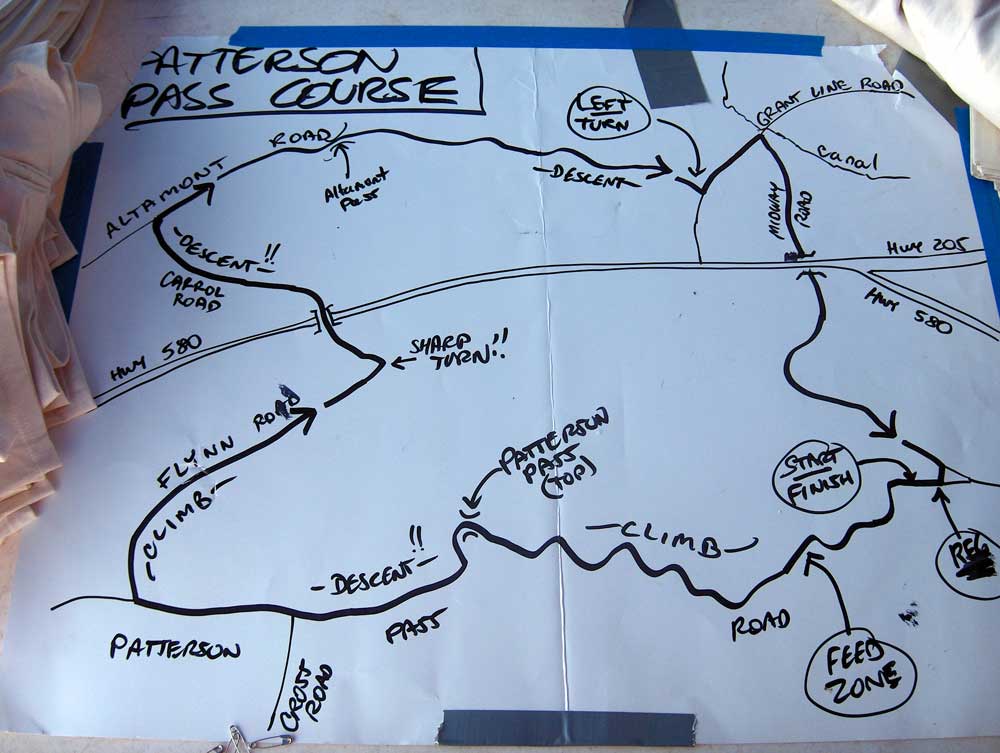 PATTERSON
PASS COURSE
LEFT
TURN
GRANT LINE ROAD
canal
ALTAMONT
ROAD
Altamont
Pass
-DESCENT-
MIDWAY
ROAD
-DESCENT-!!
CARROL
ROAD
HWY 205
HWY 580
HWY 580
SHARP
TURN!!
FLYNN ROAD
-CLIMB-
PATTERSON
PASS
(TOP)
START
FINISH
-CLIMB-
-DESCENT-!!
REG
PATTERSON
PASS
ROAD
CROSS
ROAD
FEED
ZONE